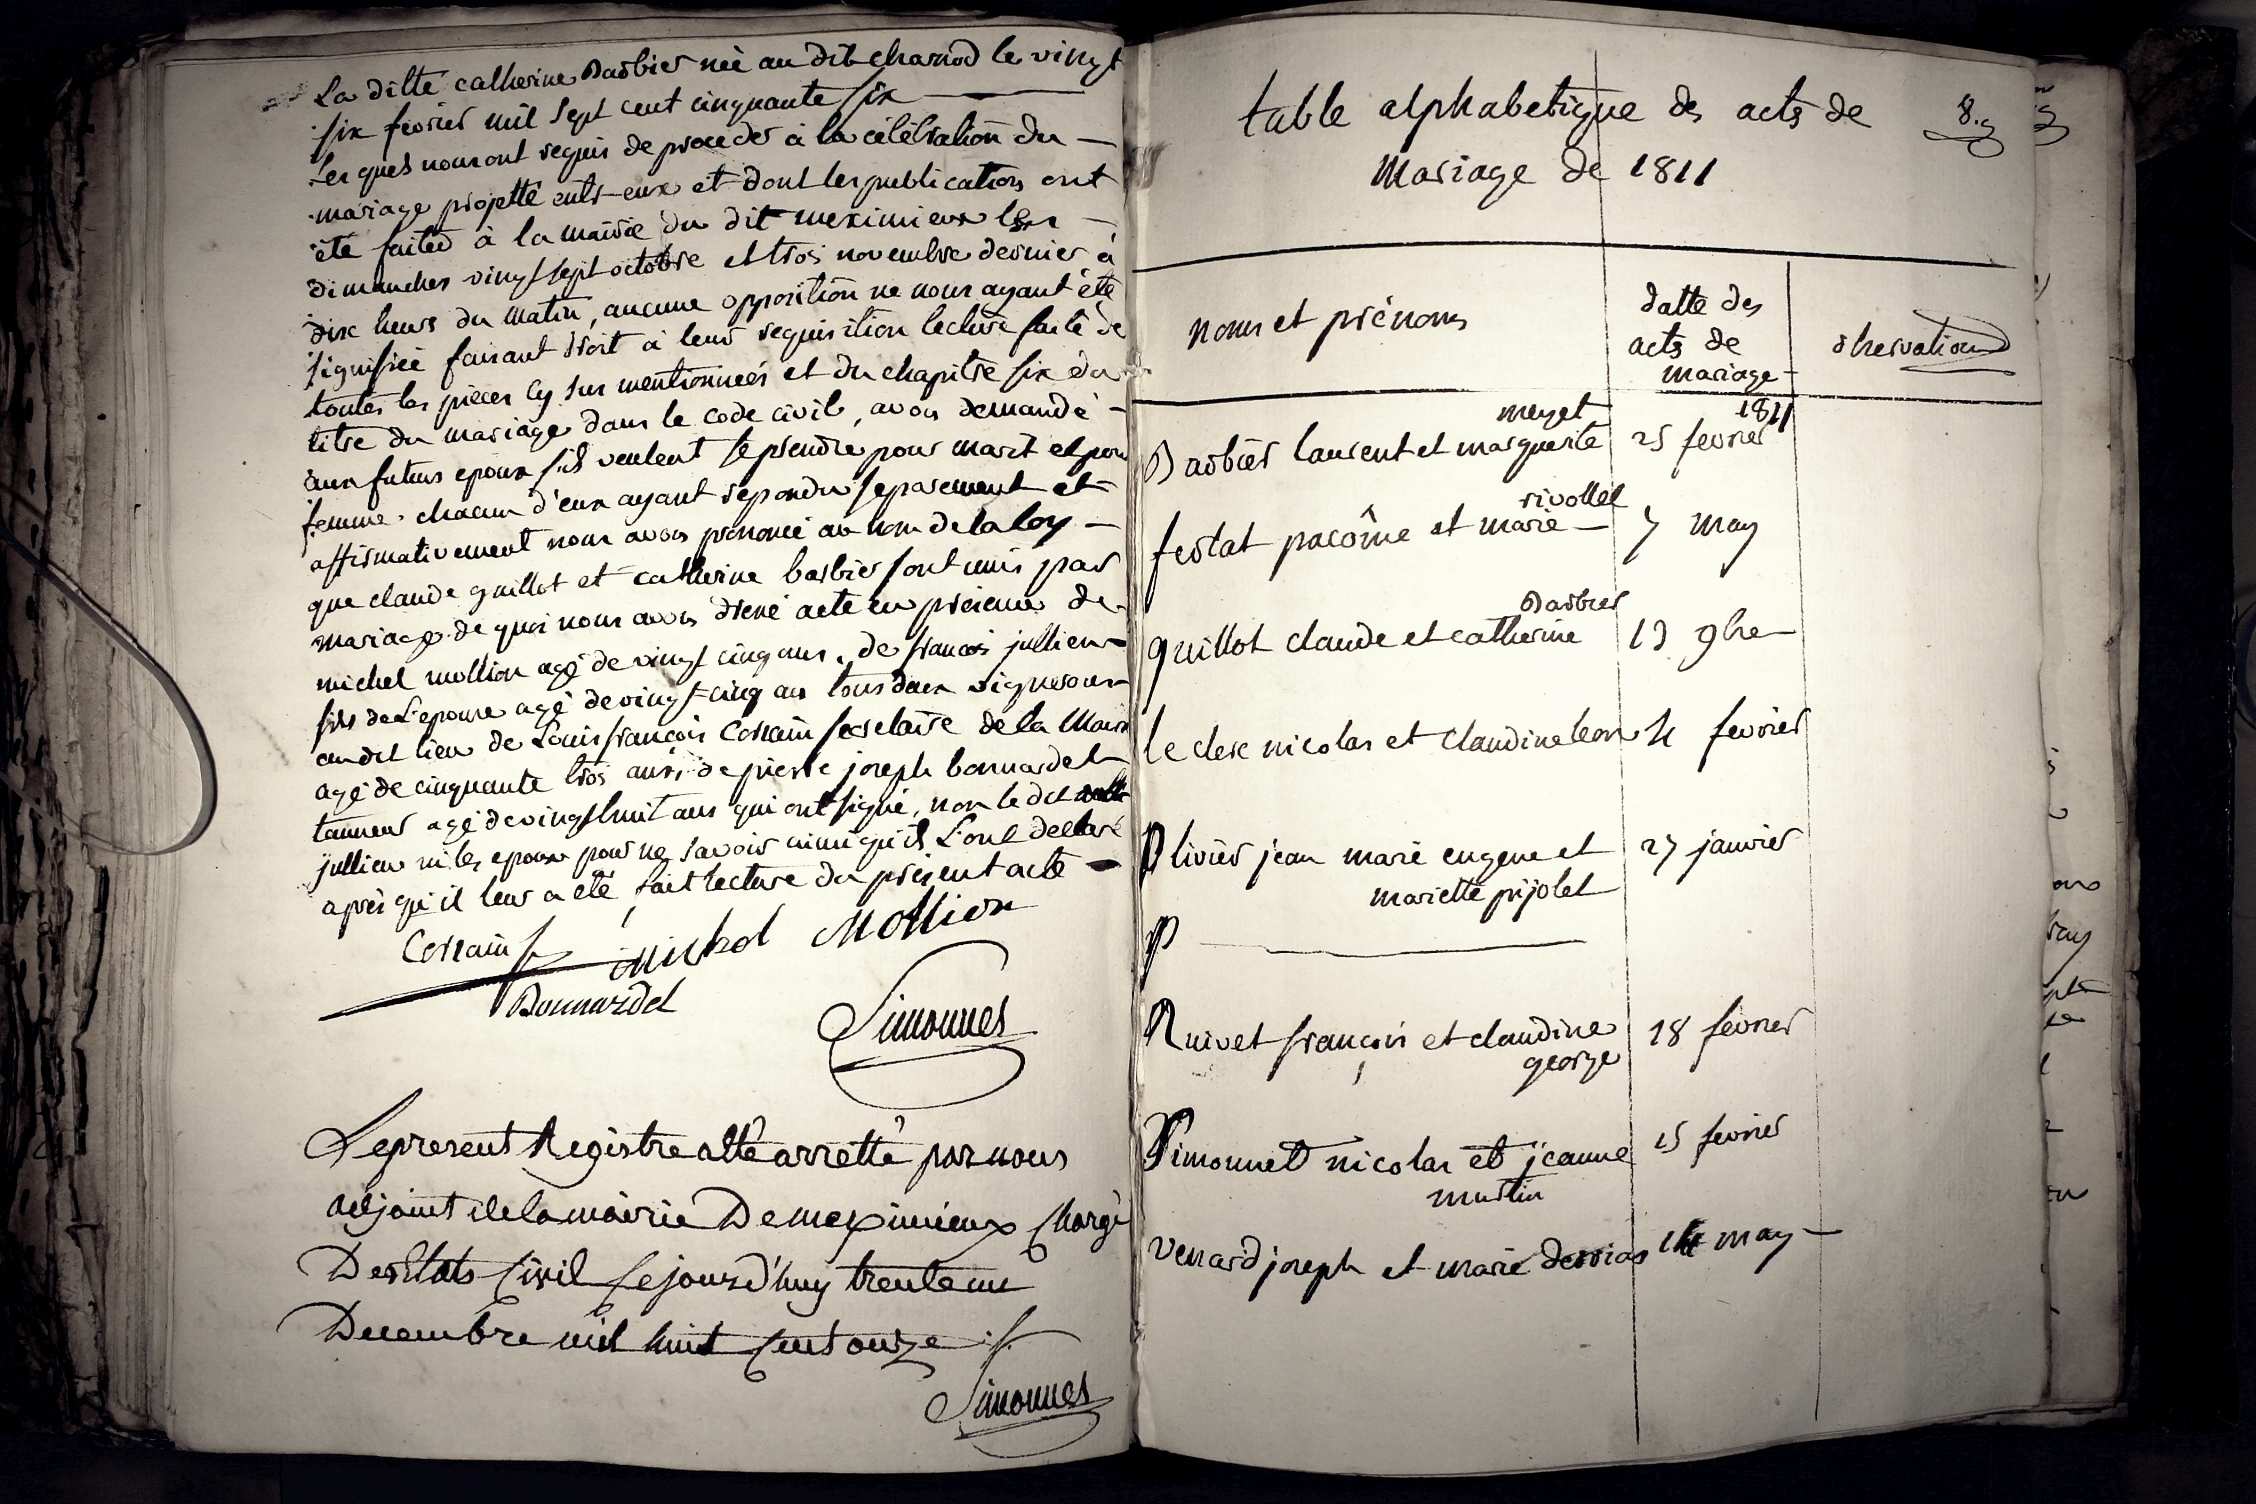 La ditte catherine Barbier neè au dit charnod le vingt
six fevrier mil sept cent cinquante six
Les quels nous ont requis de proceder à la célébration du
mariage projetté entr-eux et dont les publications ont
été faites à la mairie du dit meximieux les
dimanches vingt sept octobre et trois novembre dernier à
dix heurs du matin, aucune opposition ne nous ayant été
signifiéé faisant droit à leur requisition lecture faite de
toutes les pièces cy sus mentionneés et du chapitre six du
titre du mariage dans le code civil, avons demandé
aux futurs epoux s'ils veulent se prendre pour marit et pour
femme. chacun d'eux ayant repondu separement et
affirmativement nous avons prononcé au nom de la loy
que claude guillot et catherine barbier sont unis par
mariage. de quoi nous avons dressé acte en présence de
michel mollion agé de vingt cinq ans, de francois jullien
fils de L'epouse agé de vingt-cinq ans tous deux vignerons
au dit lieu de Louis françois Cossain secretaire de la Mairie
agé de cinquante trois ans, de pierre joseph bonnardel
tanneur agé de vingt huit ans qui ont signé, non le dit
jullien ni les epoux pour ne savoir ainsi qu'ils L'ont declaré
après qu'il leur a eté fait lecture du présent acte
Cossain michel Mollion
Bonnardel
Simonnet
Le present Registre a été arretté par nous
adjoint de la mairie De meximieux Chargé
Des Etats Civil ce jourd'huy trente un
Decembre mil huit Cent onze
Simonnet
table alphabetique des acts de
8.
Mariage de 1811
noms et prénoms
datte des
acts de
mariage
observations
meyet 1811
Barbier laurent et marguerite 25 fevrier
rivollet
ferlat pacôme et marie 7 may
Barbier
guillot claude et catherine 13 9bre
le clerc nicolas et claudine leon 4 fevrier
Olivier jean marie eugene et 27 janvier
mariette pijolet
P
Quivet françois et claudine 18 fevrier
george
Simonnet nicolas et jeanne 15 fevrier
martin
venard joseph et marie derrias 14 may